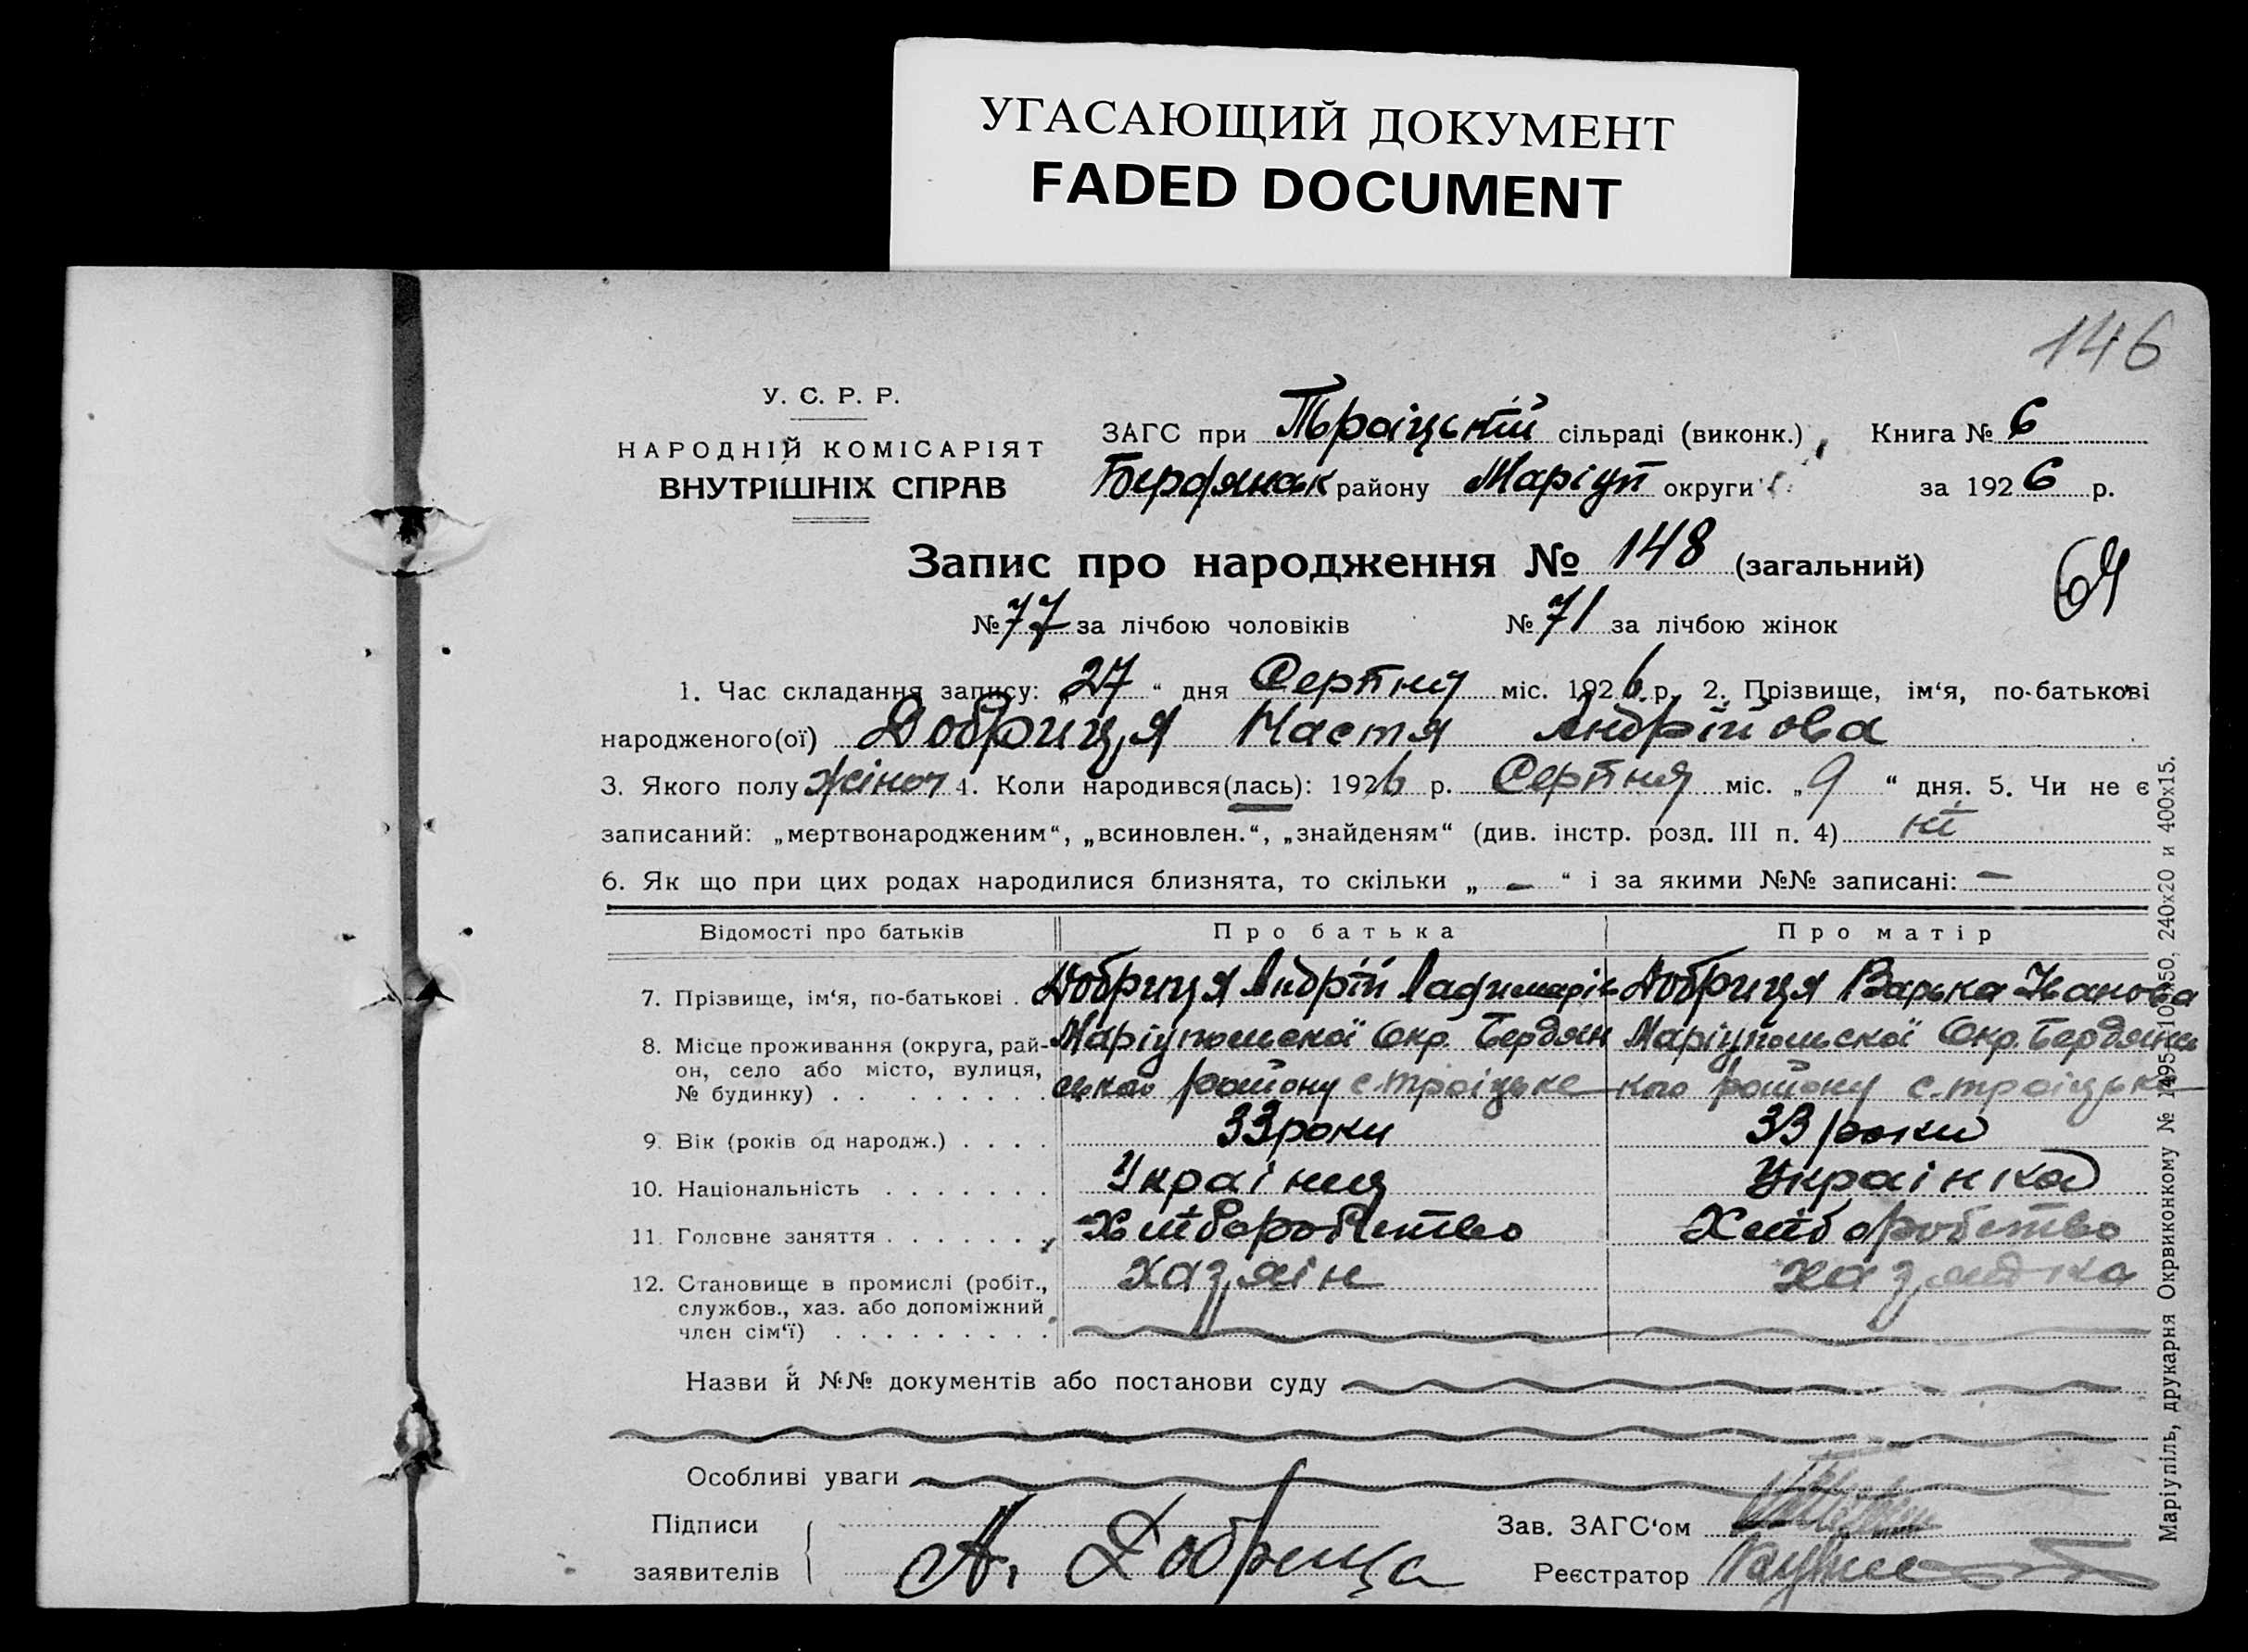 УГАСАЮЩИЙ ДОКУМЕНТ
FADED DOCUMENT
146
У. С. Р. Р.
НАРОДНІЙ КОМІСАРІЯТ
ВНУТРІШНІХ СПРАВ
ЗАГС при Тьроіцькій сільраді (виконк.), Книга № 6
Бердянськ району Маріуп округи за 1926 р.
Запис про народження № 148 (загальний)
64
№ 77 за лічбою чоловіків № 71 за лічбою жінок
1. Час складання запису: „27“ дня Серпня міс. 1926 р. 2. Прізвище, ім‘я, по-батькові
народженого(ої) Добриця Настя Андрійова
3. Якого полу жіноч 4. Коли народився(лась): 1926 р. Серпня міс. „9“ дня. 5. Чи не є
записаний: „мертвонародженим“, „всиновлен.“, „знайденям“ (див. інстр. розд. III п. 4) ні
6. Як що при цих родах народилися близнята, то скільки „ — “ і за якими №№ записані: —
Відомості про батьків Про батька Про матір
7. Прізвище, ім‘я, по-батькові . Добриця Андрій Добриця Варька Іванова
8. Місце проживання (округа, рай- Маріупольскої Окр. Бердян Маріупольскої Окр. Бердянсь
он, село або місто, вулиця, ського району с. троіцьке кого району с. троіцьке
№ будинку) . . . . . . . . .
9. Вік (років од народж.) . . . . 33 роки 33 роки
10. Національність . . . . . . . Украінця Украінка
11. Головне заняття . . . . . . . Хліборобство Хліборобство
12. Становище в промислі (робіт., Хазяін Хазяйка
службов., хаз. або допоміжний
член сім‘ї) . . . . . . . . .
Назви й №№ документів або постанови суду
Особливі уваги
Підписи Зав. ЗАГС‘ом
заявителів А. Добрица Реєстратор
Маріупіль, друкарня Окрвиконкому № 1495-10050, 240х20 и 400х15.